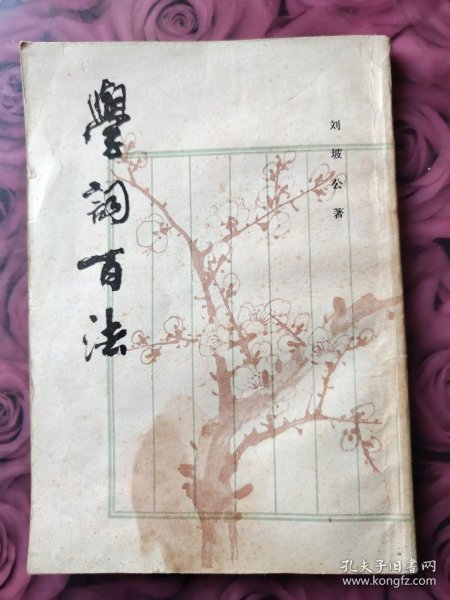 學詞百法
刘玻公著
孔夫子旧书网
www.kongfz.com